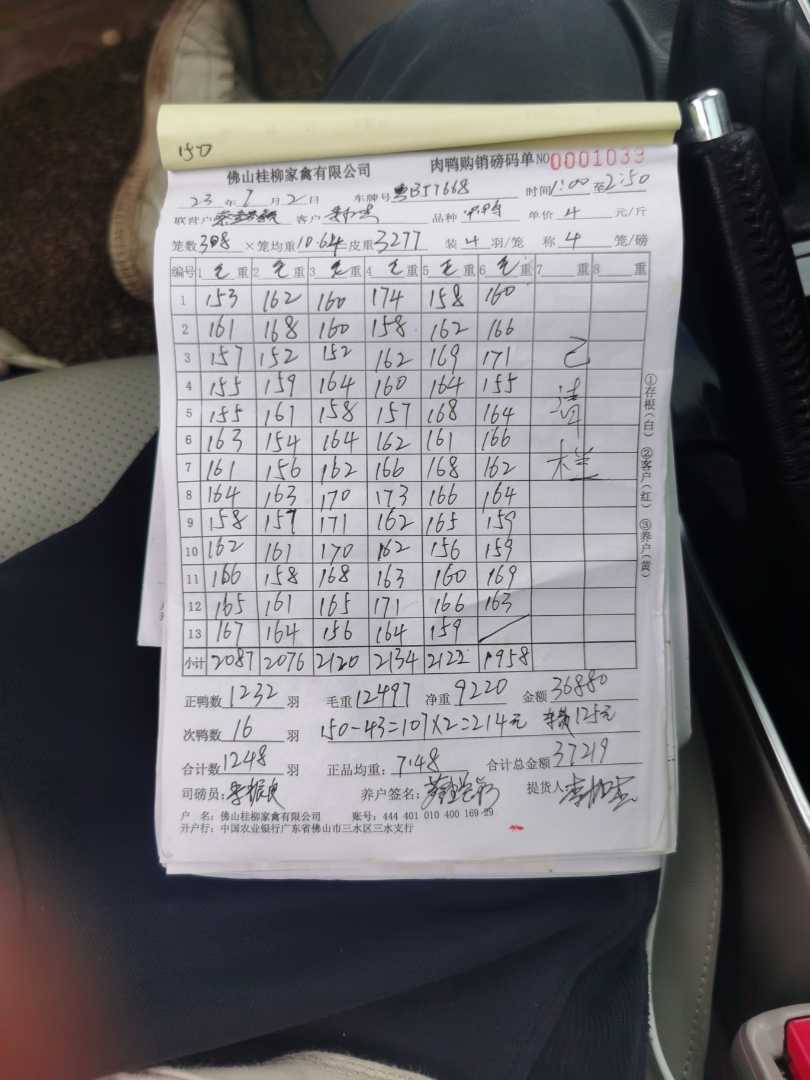 150
佛山桂柳家禽有限公司 肉鸭购销磅码单 NO 0001039
23 年 7 月 2 日 车牌号 粤B57668 时间 1:00 至 2:50
联营户 客户 品种 中鸭 单价 4 元/斤
笼数 308 ×笼均重 10.64 皮重 3277 装 4 羽/笼 称 4 笼/磅
编号 1 毛 重 2 毛 重 3 毛 重 4 毛 重 5 毛 重 6 毛 重 7 重 8 重
1 153 162 160 174 158 160
2 161 168 160 158 162 166
3 157 152 152 162 169 171 已
4 155 159 164 160 164 155
5 155 161 158 157 168 164 清
6 163 154 164 162 161 166
7 161 156 162 166 168 162 栏
8 164 163 170 173 166 164
9 158 157 171 162 165 159
10 162 161 170 162 156 159
11 166 158 168 163 160 169
12 165 161 165 171 166 163
13 167 164 156 164 159
小计 2087 2076 2120 2134 2122 1958
①存根(白) ②客户(红) ③养户(黄)
正鸭数 1232 羽 毛重 12497 净重 9220 金额 36880
次鸭数 16 羽 150-43=107×2=214元 125元
合计数 1248 羽 正品均重: 7.48 合计总金额 37219
司磅员: 养户签名: 提货人
户 名: 佛山桂柳家禽有限公司 账号: 444 401 010 400 169 29
开户行: 中国农业银行广东省佛山市三水区三水支行